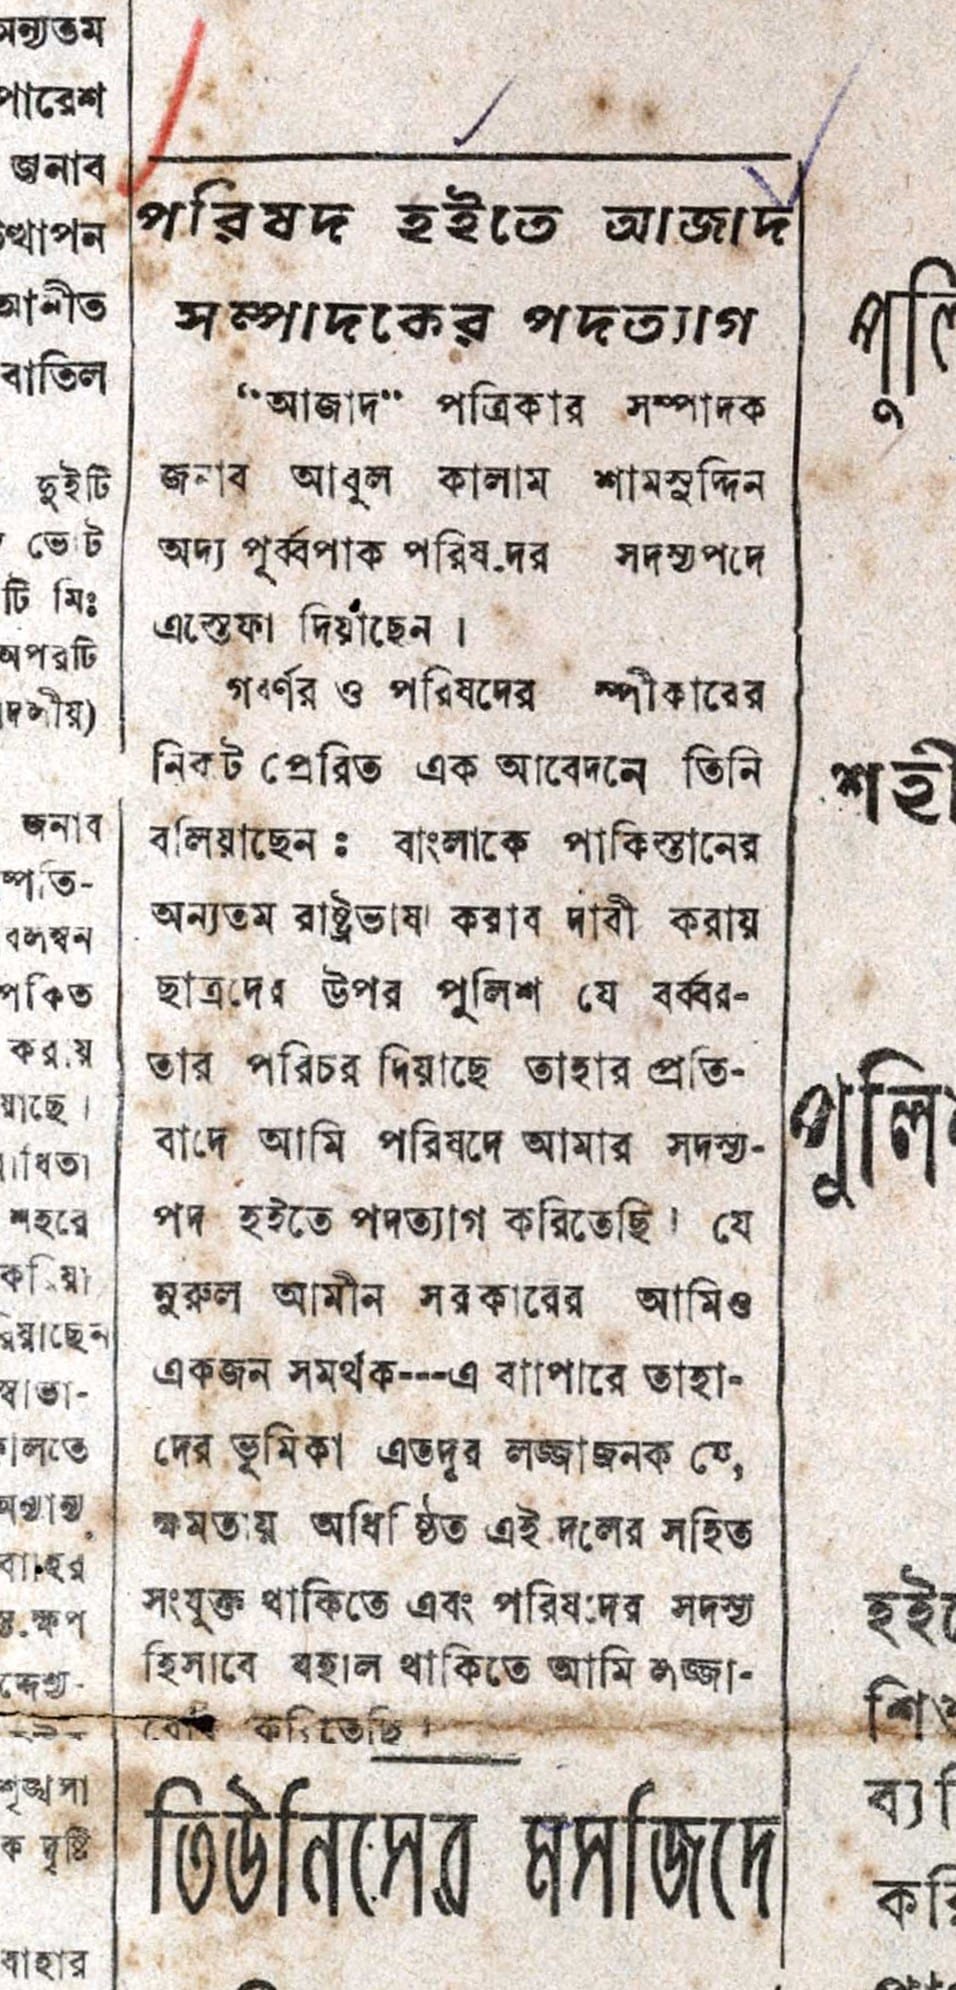 অন্যতম
পারেশ
জনাব
আনীত
বাতিল
দুইটি
ভোট
টি মিঃ
অপরটি
জনাব
শহরে
বাহার
পরিষদ হইতে আজাদ
সম্পাদকের পদত্যাগ
“আজাদ” পত্রিকার সম্পাদক
জনাব আবুল কালাম শামসুদ্দিন
অদ্য পূর্ব্বপাক পরিষদের সদস্যপদে
এস্তেফা দিয়াছেন ।
গবর্ণর ও পরিষদের স্পীকারের
নিকট প্রেরিত এক আবেদনে তিনি
বলিয়াছেন : বাংলাকে পাকিস্তানের
অন্যতম রাষ্ট্রভাষা করাব দাবী করায়
ছাত্রদের উপর পুলিশ যে বর্ব্বর-
তার পরিচর দিয়াছে তাহার প্রতি-
বাদে আমি পরিষদে আমার সদস্য-
পদ হইতে পদত্যাগ করিতেছি । যে
নুরুল আমীন সরকারের আমিও
একজন সমর্থক---এ ব্যাপারে তাহা-
দের ভূমিকা এতদূর লজ্জাজনক যে,
ক্ষমতায় অধিষ্ঠিত এই দলের সহিত
সংযুক্ত থাকিতে এবং পরিষদের সদস্য
হিসাবে বহাল থাকিতে আমি লজ্জা-
বোধ করিতেছি ।
তিউনিসের মসজিদে
পুলি
শহী
পুলি